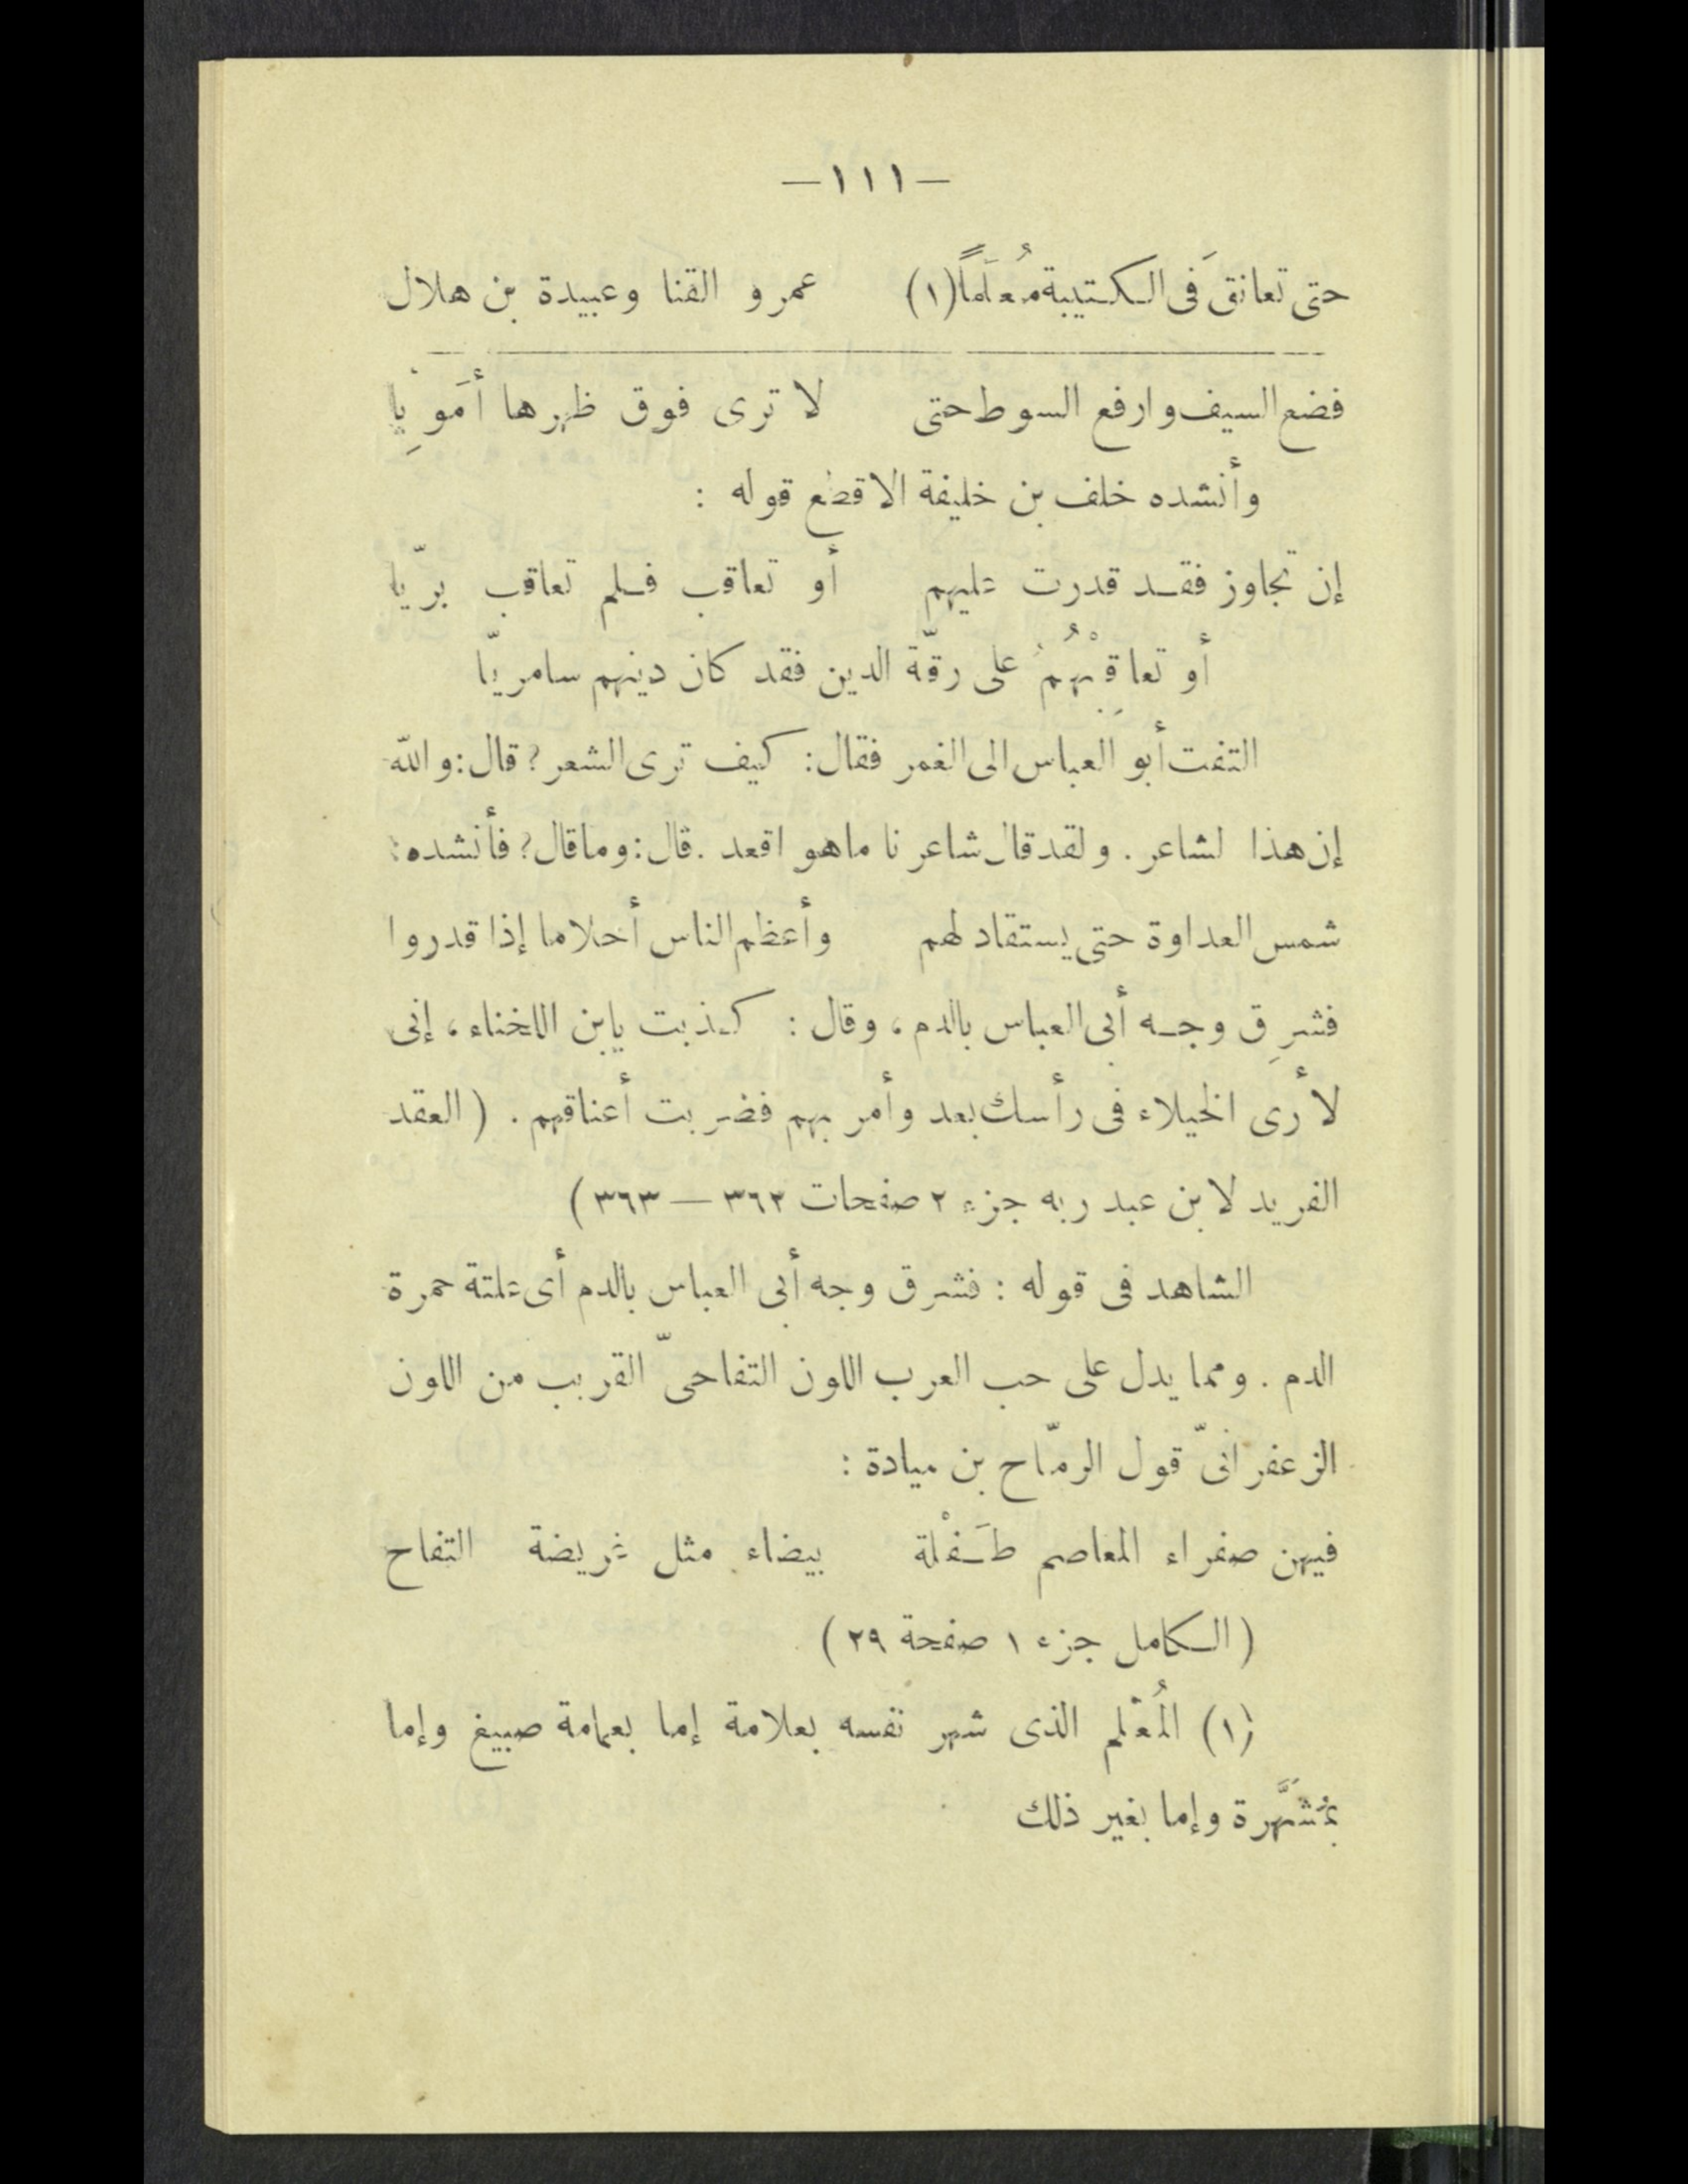 —١١١—
حتى تعانقَ فى الكتيبة مُعلَماً(١) عمرو القنا وعبيدة بن هلال
فضع السيف وارفع السوط حتى لا ترى فوق ظهرها أَمَوِيا
وأنشده خلف بن خليفة الاقطع قوله :
إن تجاوز فقد قدرت عليهم أو تعاقب فلم تعاقب بريّا
أو تعاقِبْهُمُ على رقّة الدين فقد كان دينهم سامريّا
التفت أبو العباس الى الغمر فقال: كيف ترى الشعر؟ قال: والله
إن هذا لشاعر . ولقد قال شاعرنا ما هو اقعد . قال: وما قال؟ فأنشده:
شمس العداوة حتى يستقاد لهم وأعظم الناس أحلاما إذا قدروا
فشرِق وجه أبى العباس بالدم ، وقال : كذبت يابن اللخناء ، إنى
لأرى الخيلاء فى رأسك بعد وأمر بهم فضربت أعناقهم . ( العقد
الفريد لابن عبد ربه جزء ٢ صفحات ٣٦٢ — ٣٦٣ )
الشاهد فى قوله : فشرق وجه أبى العباس بالدم أى علتة حمرة
الدم . ومما يدل على حب العرب اللون التفاحىّ القريب من اللون
الزعفرانىّ قول الرمّاح بن ميادة :
فيهن صفراء المعاصم طَفْلة بيضاء مثل غريضة التفاح
( الكامل جزء ١ صفحة ٢٩ )
(١) المُعْلم الذى شهر نفسه بعلامة إما بعمامة صبيغ وإما
بمُشَهَّرة وإما بغير ذلك